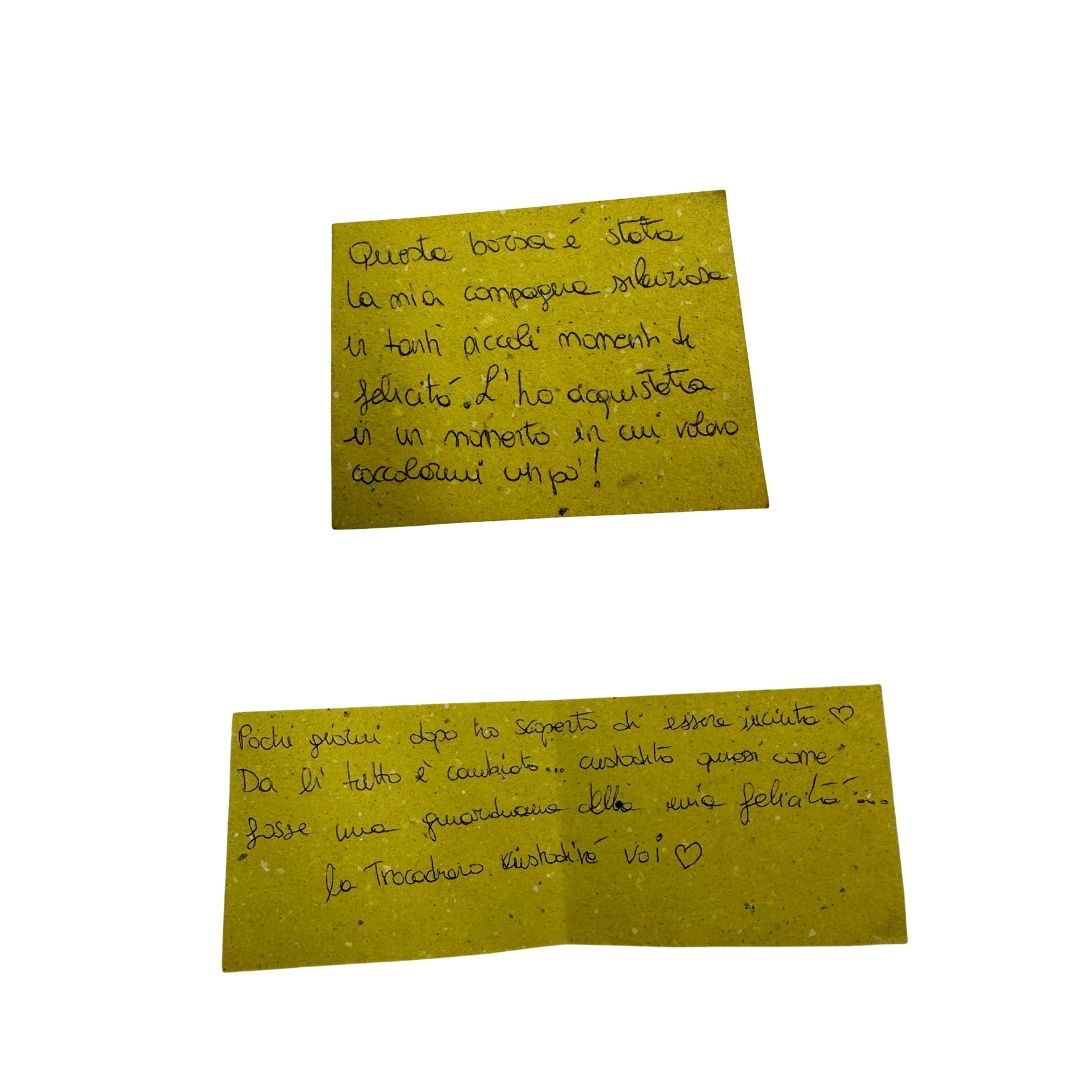 Questa borsa é stata
la mia compagna silenziosa
in tanti piccoli momenti di
felicitá. L'ho acquistata
in un momento in cui volevo
coccolarmi un po'!
Pochi giorni dopo ho scoperto di essere incinta ♡
Da li tutto è cambiato... custodita quasi come
fosse una guardiana della mia felicitá...
la Trocadraio custodirá voi ♡